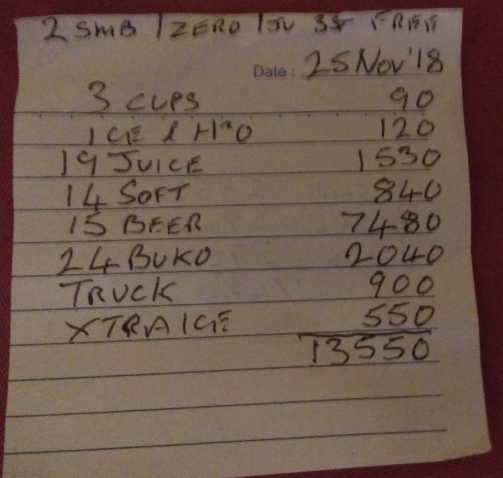 2 SMB 1 ZERO 1 JU 38 FREE
Date: 25 Nov '18
3 CUPS 90
ICE & H²O 120
19 JUICE 1530
14 SOFT 840
15 BEER 7480
24 BUKO 2040
TRUCK 900
XTRA ICE 550
13550